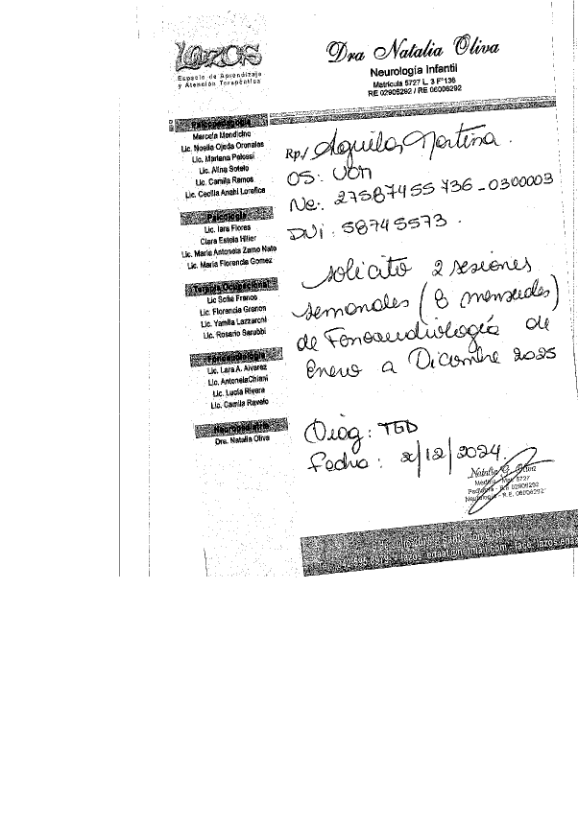 Lazos
Espacio de Aprendizaje
y Atención Terapéutica
Dra Natalia Oliva
Neurología Infantil
Matrícula 5727 L. 3 F°136
RE 02905292 / RE 06006292
Psicopedagogía
Marcela Mendicino
Lic. Noelia Ojeda Oronales
Lic. Mariana Pelossi
Lic. Alina Sotelo
Lic. Camila Ramos
Lic. Cecilia Anahí Lorefice
Psicología
Lic. Iara Flores
Clara Estela Hiller
Lic. María Antonela Zamo Nato
Lic. María Florencia Gomez
Terapia Ocupacional
Lic Sofia Franco
Lic. Florencia Grenon
Lic. Yamila Lazzaroni
Lic. Rosario Sarubbi
Fonoaudiología
Lic. Lara A. Alvarez
Lic. Antonela Chiani
Lic. Lucía Rivera
Lic. Camila Ravelo
Neuropediatría
Dra. Natalia Oliva
Rp/ Aguilar Martina.
OS: UOM
Nº: 27587455736-0300003
DNI: 58745573.
solicito 2 sesiones
semanales (8 mensuales)
de Fonoaudiología de
Enero a Diciembre 2025
Diag: TGD
Fecha: 2/12/2024.
Natalia G. Oliva